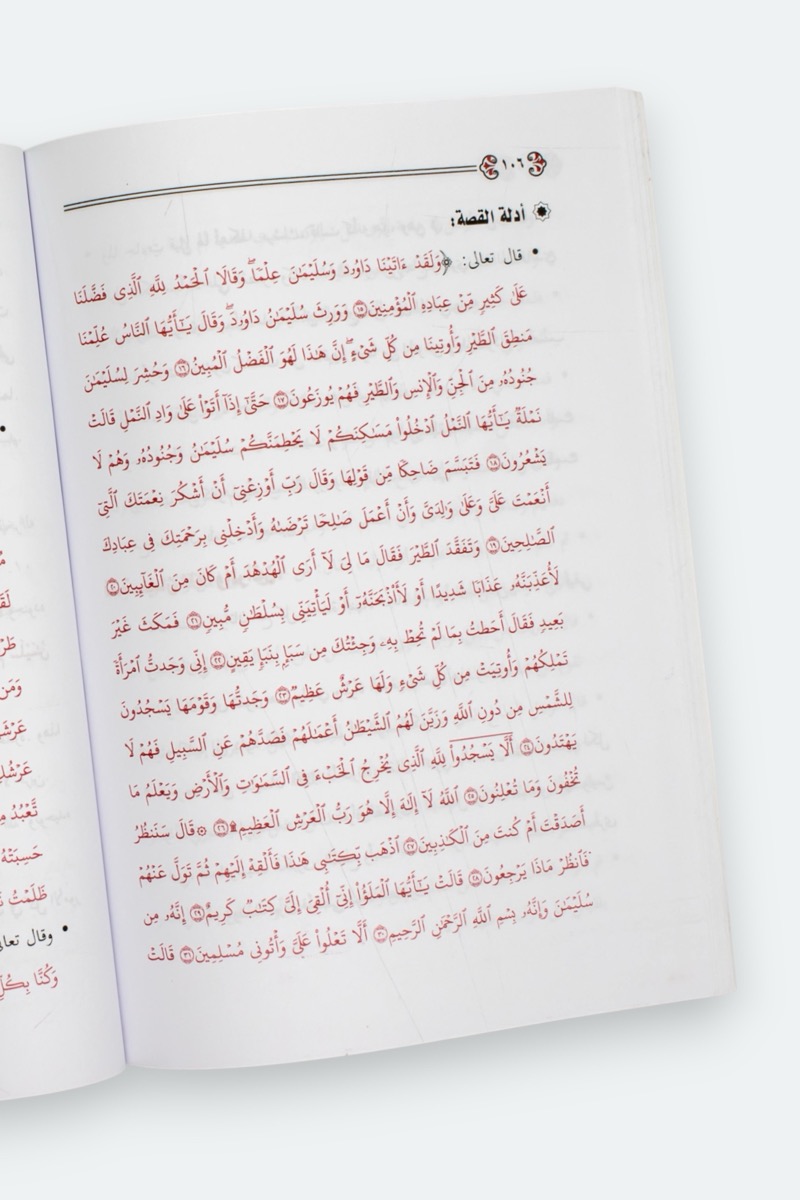 ١٠٦
أدلة القصة:
• قال تعالى: ﴿وَلَقَدْ ءَاتَيْنَا دَاوُۥدَ وَسُلَيْمَٰنَ عِلْمًاۖ وَقَالَا ٱلْحَمْدُ لِلَّهِ ٱلَّذِى فَضَّلَنَا
عَلَىٰ كَثِيرٍ مِّنْ عِبَادِهِ ٱلْمُؤْمِنِينَ ١٥ وَوَرِثَ سُلَيْمَٰنُ دَاوُۥدَۖ وَقَالَ يَٰٓأَيُّهَا ٱلنَّاسُ عُلِّمْنَا
مَنطِقَ ٱلطَّيْرِ وَأُوتِينَا مِن كُلِّ شَىْءٍۖ إِنَّ هَٰذَا لَهُوَ ٱلْفَضْلُ ٱلْمُبِينُ ١٦ وَحُشِرَ لِسُلَيْمَٰنَ
جُنُودُهُۥ مِنَ ٱلْجِنِّ وَٱلْإِنسِ وَٱلطَّيْرِ فَهُمْ يُوزَعُونَ ١٧ حَتَّىٰٓ إِذَآ أَتَوْا۟ عَلَىٰ وَادِ ٱلنَّمْلِ قَالَتْ
نَمْلَةٌ يَٰٓأَيُّهَا ٱلنَّمْلُ ٱدْخُلُوا۟ مَسَٰكِنَكُمْ لَا يَحْطِمَنَّكُمْ سُلَيْمَٰنُ وَجُنُودُهُۥ وَهُمْ لَا
يَشْعُرُونَ ١٨ فَتَبَسَّمَ ضَاحِكًا مِّن قَوْلِهَا وَقَالَ رَبِّ أَوْزِعْنِىٓ أَنْ أَشْكُرَ نِعْمَتَكَ ٱلَّتِىٓ
أَنْعَمْتَ عَلَىَّ وَعَلَىٰ وَٰلِدَىَّ وَأَنْ أَعْمَلَ صَٰلِحًا تَرْضَىٰهُ وَأَدْخِلْنِى بِرَحْمَتِكَ فِى عِبَادِكَ
ٱلصَّٰلِحِينَ ١٩ وَتَفَقَّدَ ٱلطَّيْرَ فَقَالَ مَا لِىَ لَآ أَرَى ٱلْهُدْهُدَ أَمْ كَانَ مِنَ ٱلْغَآئِبِينَ ٢٠
لَأُعَذِّبَنَّهُۥ عَذَابًا شَدِيدًا أَوْ لَأَا۟ذْبَحَنَّهُۥٓ أَوْ لَيَأْتِيَنِّى بِسُلْطَٰنٍ مُّبِينٍ ٢١ فَمَكَثَ غَيْرَ
بَعِيدٍ فَقَالَ أَحَطتُ بِمَا لَمْ تُحِطْ بِهِۦ وَجِئْتُكَ مِن سَبَإٍۭ بِنَبَإٍ يَقِينٍ ٢٢ إِنِّى وَجَدتُّ ٱمْرَأَةً
تَمْلِكُهُمْ وَأُوتِيَتْ مِن كُلِّ شَىْءٍ وَلَهَا عَرْشٌ عَظِيمٌ ٢٣ وَجَدتُّهَا وَقَوْمَهَا يَسْجُدُونَ
لِلشَّمْسِ مِن دُونِ ٱللَّهِ وَزَيَّنَ لَهُمُ ٱلشَّيْطَٰنُ أَعْمَٰلَهُمْ فَصَدَّهُمْ عَنِ ٱلسَّبِيلِ فَهُمْ لَا
يَهْتَدُونَ ٢٤ أَلَّا يَسْجُدُوا۟ لِلَّهِ ٱلَّذِى يُخْرِجُ ٱلْخَبْءَ فِى ٱلسَّمَٰوَٰتِ وَٱلْأَرْضِ وَيَعْلَمُ مَا
تُخْفُونَ وَمَا تُعْلِنُونَ ٢٥ ٱللَّهُ لَآ إِلَٰهَ إِلَّا هُوَ رَبُّ ٱلْعَرْشِ ٱلْعَظِيمِ۩ ٢٦ ۞ قَالَ سَنَنظُرُ
أَصَدَقْتَ أَمْ كُنتَ مِنَ ٱلْكَٰذِبِينَ ٢٧ ٱذْهَب بِّكِتَٰبِى هَٰذَا فَأَلْقِهْ إِلَيْهِمْ ثُمَّ تَوَلَّ عَنْهُمْ
فَٱنظُرْ مَاذَا يَرْجِعُونَ ٢٨ قَالَتْ يَٰٓأَيُّهَا ٱلْمَلَؤُا۟ إِنِّىٓ أُلْقِىَ إِلَىَّ كِتَٰبٌ كَرِيمٌ ٢٩ إِنَّهُۥ مِن
سُلَيْمَٰنَ وَإِنَّهُۥ بِسْمِ ٱللَّهِ ٱلرَّحْمَٰنِ ٱلرَّحِيمِ ٣٠ أَلَّا تَعْلُوا۟ عَلَىَّ وَأْتُونِى مُسْلِمِينَ ٣١ قَالَتْ
وَمَن
حَسِبَتْهُ
ظَلَمْتُ
• وقال تعالى
وَكُنَّا بِكُلِّ